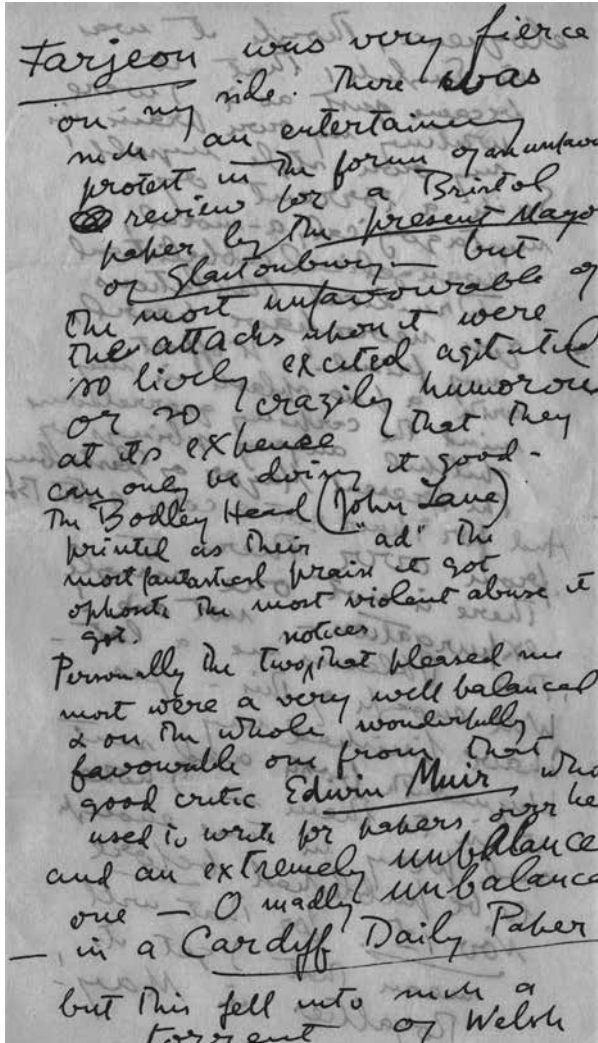 Farjeon was very fierce
on my side. There was
such an entertaining
protest in the form of an unfavou
review for a Bristol
paper by the present Mayo
of Glastonbury — but
the most unfavourable of
the attacks upon it were
so lively excited agitated
or so crazily humorous
at its expence that they
can only be doing it good -
The Bodley Head (John Lane)
printed as their "ad" the
most fantastical praise it got
opposite the most violent abuse it
got.
Personally the two notices that pleased me
most were a very well balanced
& on the whole wonderfully
favourable one from that
good critic Edwin Muir who
used to write for papers over he
and an extremely unbalance
one — O madly unbalance
— in a Cardiff Daily Paper
but this fell into such a
torrent of Welsh